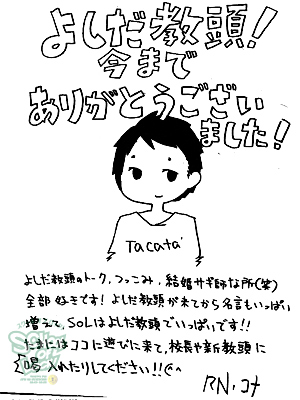 よしだ教頭!
今まで
ありがとうござい
ました!
Tacata'
よしだ教頭のトーク、つっこみ、結婚サギ師な所(笑)
全部好きです! よしだ教頭が来てから名言もいっぱい
増えて、SoLはよしだ教頭でいっぱいです!!
たまにはココに遊びに来て、校長や新教頭に
喝 入れたりしてください!!
RN.コナ